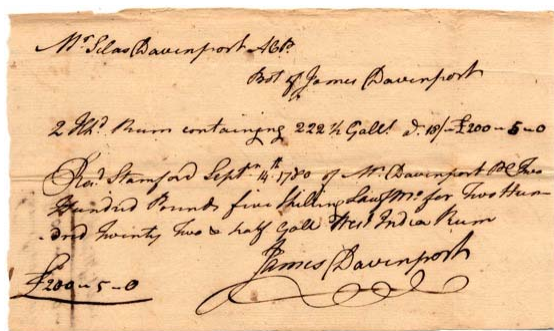 Mr. Silas Davenport ACP
Bot of James Davenport
2 Hhd Rum containing 222 ½ Galls @ 18/ - £200 - 5 - 0
Recd. Stamford Septm. 4th. 1780 of Mr. Davenport Two
Hundred Pounds five Shilling Lawf Mo. for Two Hun-
dred Twenty Two & half Gall West India Rum
James Davenport
£200 - 5 - 0